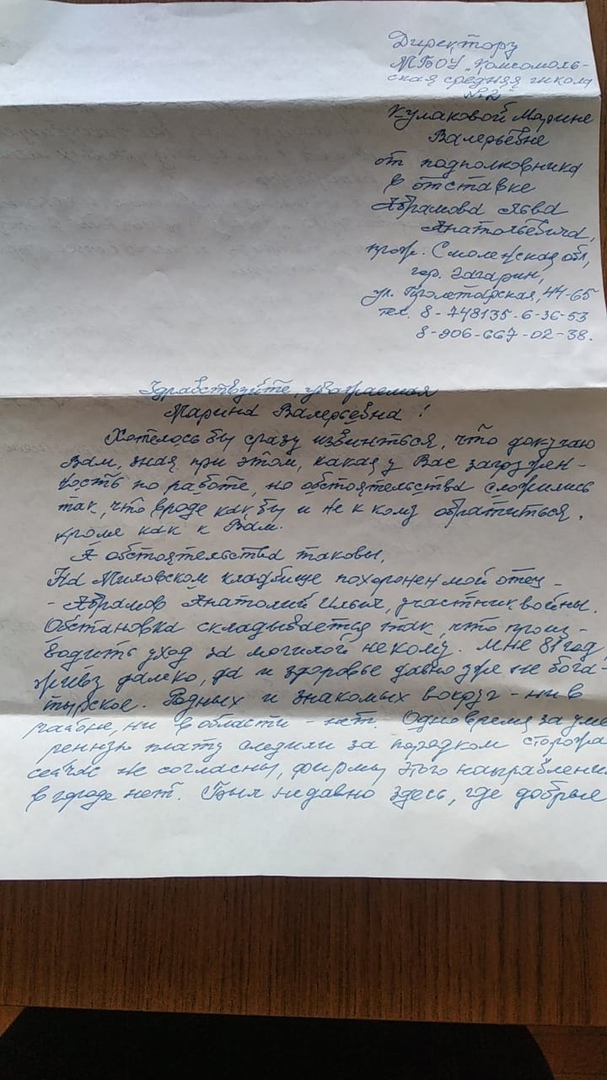 Директору
МБОУ „Комсомоль-
ская средняя школа
№2
Кулаковой Марине
Валерьевне
от подполковника
в отставке
Абрамова Льва
Анатольевича,
прож. Смоленская обл,
гор. Гагарин,
ул. Пролетарская, 44-65
тел. 8-748135-6-36-53
8-906-667-02-38.
Здравствуйте, уважаемая
Марина Валерьевна!
Хотелось бы сразу извиниться, что докучаю
Вам, зная при этом, какая у Вас загружен-
ность по работе, но обстоятельства сложились
так, что вроде как бы и не к кому обратиться,
кроме как к Вам.
А обстоятельства таковы.
На Миловском кладбище похоронен мой отец -
- Абрамов Анатолий Ильич, участник войны.
Обстановка складывается так, что произ-
водить уход за могилой некому. Мне 81 год,
живу далеко, да и здоровье давно уже не бога-
тырское. Родных и знакомых вокруг - ни в
районе, ни в области - нет. Одно время за уме
ренную плату следили за порядком сторожа
сейчас не согласны, фирмы этого направлени
в городе нет. Был недавно здесь, где добрые